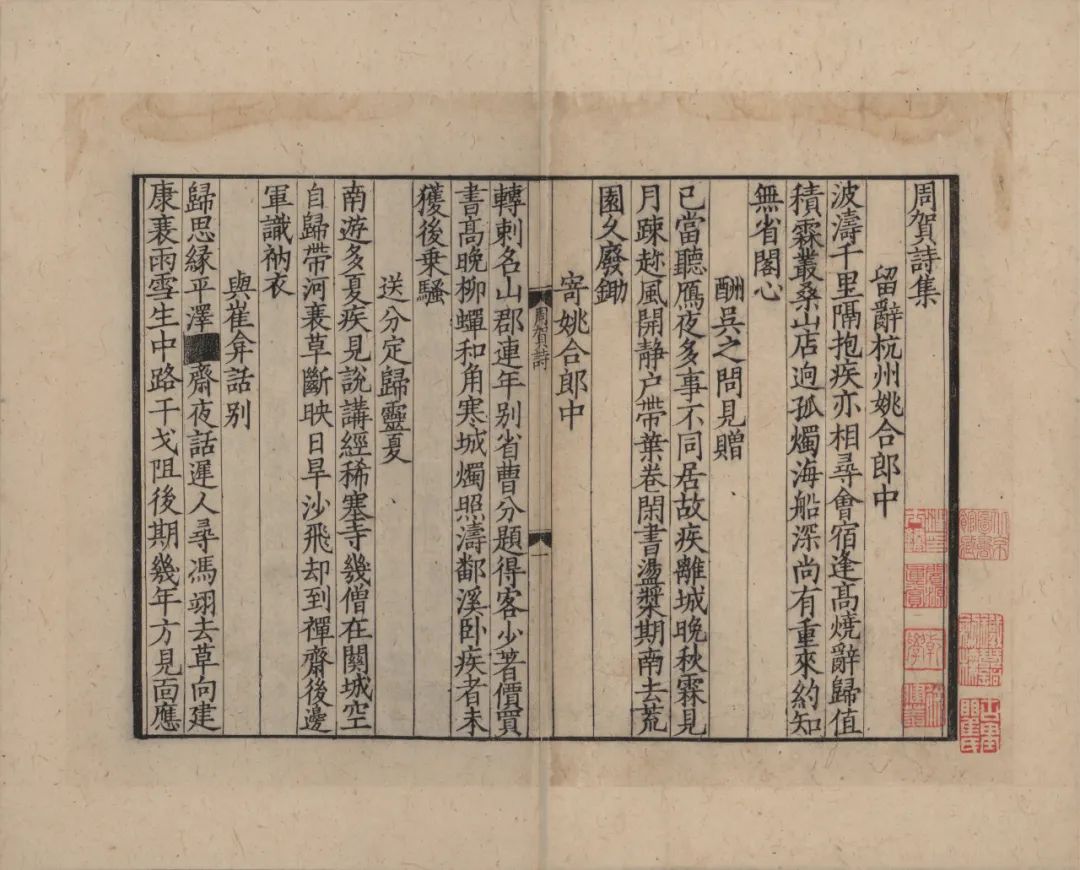 周賀詩集
留辭杭州姚合郎中
波濤千里隔抱疾亦相尋會宿逢高燒辭歸值
積霖叢桑山店迥孤燭海船深尚有重來約知
無省閣心
酬吳之問見贈
已當聽鴈夜多事不同居故疾離城晚秋霖見
月踈趂風開静户帶葉卷閑書盪槳期南去荒
園久廢鋤
寄姚合郎中
周賀詩
一
轉刺名山郡連年别省曹分題得客少著價買
書高晚柳蟬和角寒城燭照濤鄱溪卧疾者未
獲後乗騷
送分定歸靈夏
南遊多夏疾見說講經稀塞寺幾僧在關城空
自歸帶河衰草斷映日早沙飛却到禪齋後邊
軍識衲衣
與崔弇話别
歸思緣平澤齋夜話遲人尋馮翊去草向建
康衰雨雪生中路干戈阻後期幾年方見面應